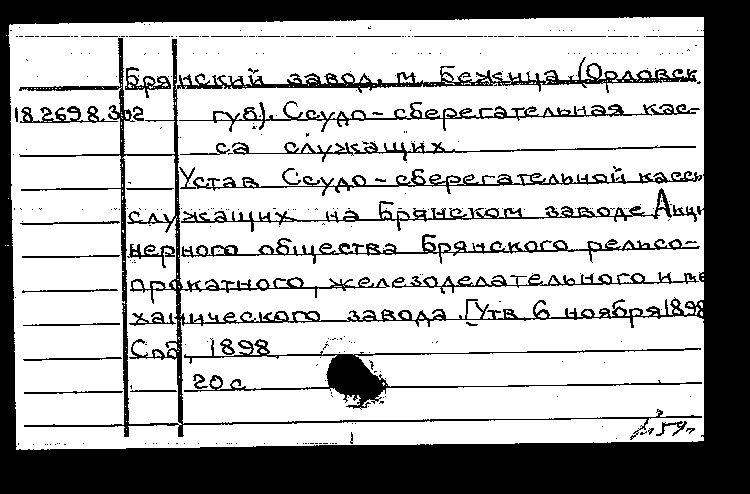 Брянский завод, м. Бежица. (Орловск
18.269.8.302 губ). Ссудо-сберегательная кас-
са служащих.
Устав Ссудо-сберегательной кассы
служащих на Брянском заводе Акци
нерного общества Брянского рельсо-
прокатного, железоделательного и ме
ханического завода. [Утв. 6 ноября 1898
Спб, 1898
20 с.